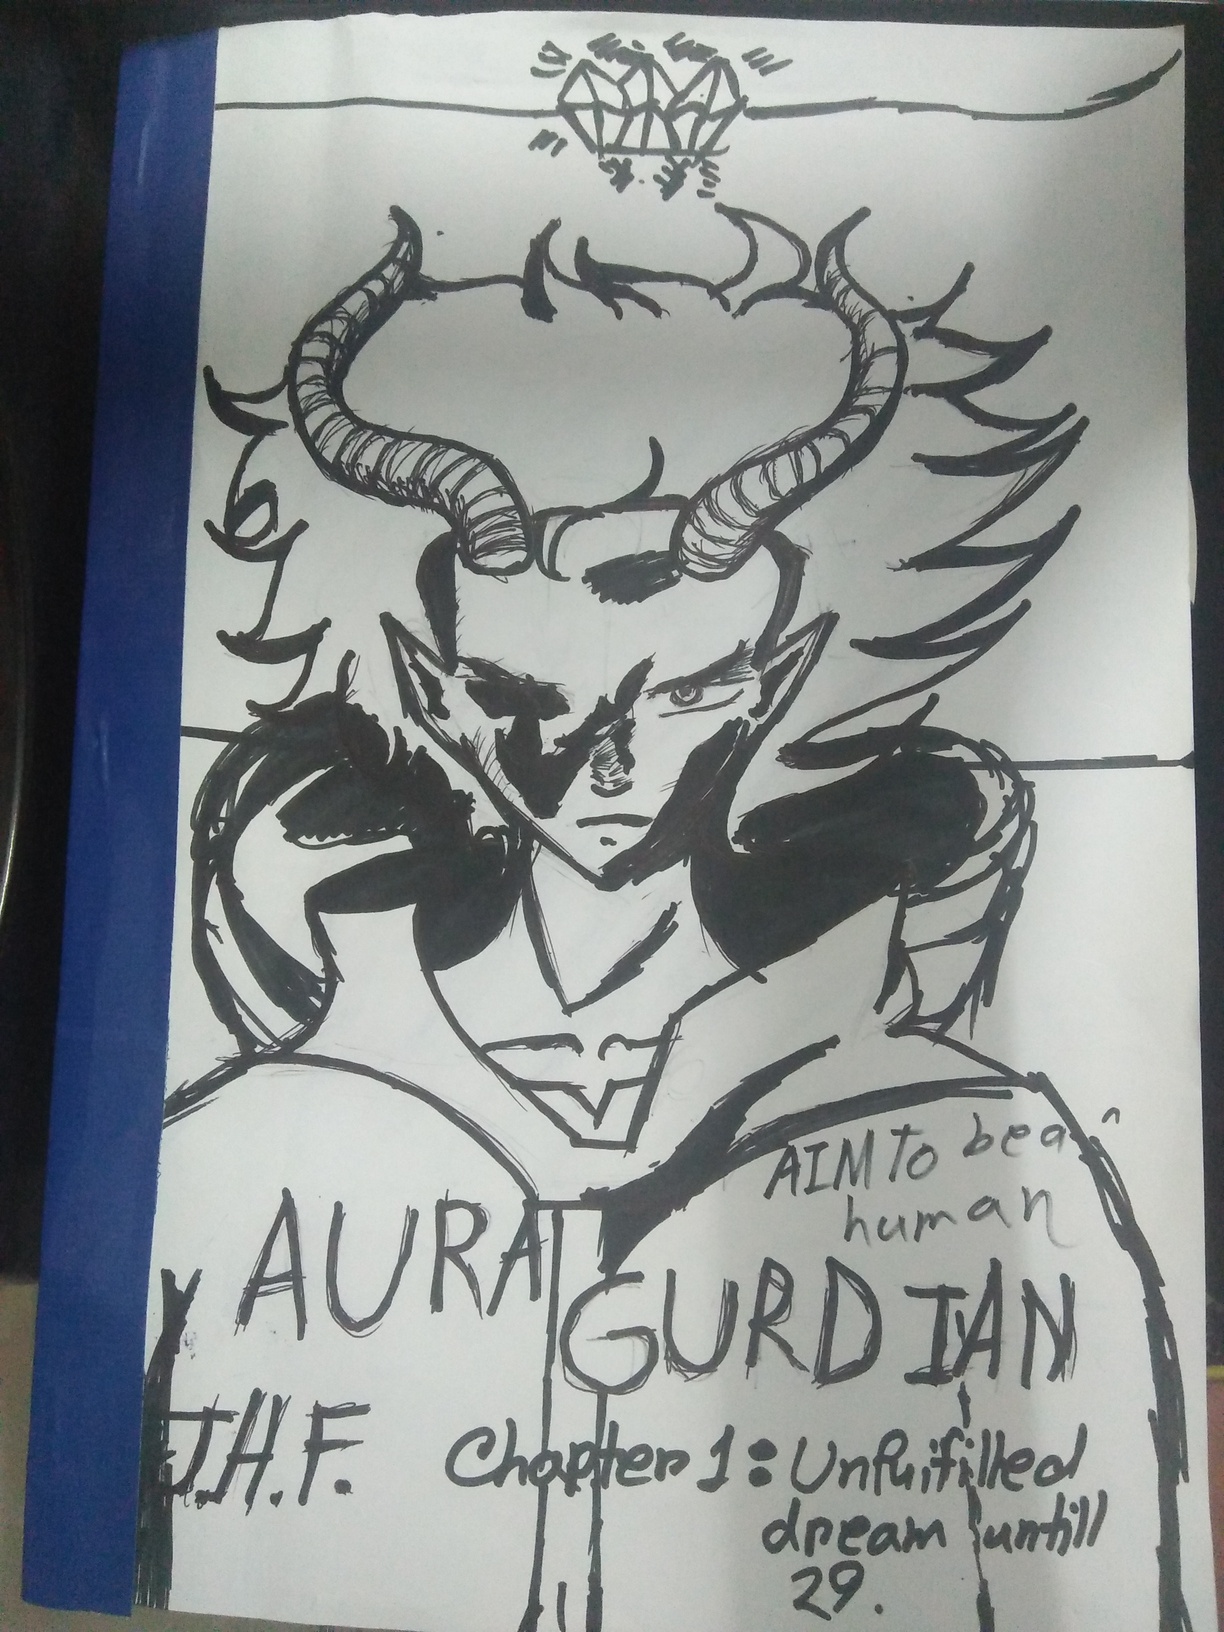 AIM TO be a
human
AURA GURDIAN
J.H.F.
Chapter 1: Unfuifilled
dream untill
29.